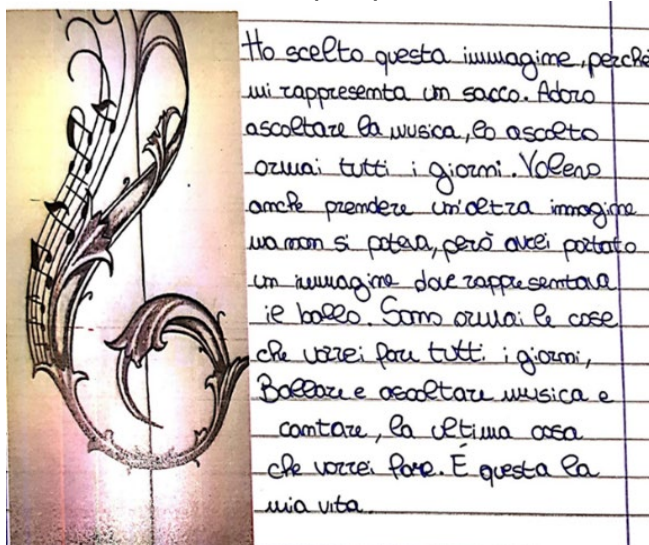 Ho scelto questa immagine, perché
mi rappresenta un sacco. Adoro
ascoltare la musica, lo ascolto
ormai tutti i giorni. Volevo
anche prendere un'altra immagine
ma non si poteva, però avrei portato
un immagine dove rappresentava
il ballo. Sono ormai le cose
che vorrei fare tutti i giorni,
Ballare e ascoltare musica e
cantare, la ultima cosa
che vorrei fare. È questa la
mia vita.